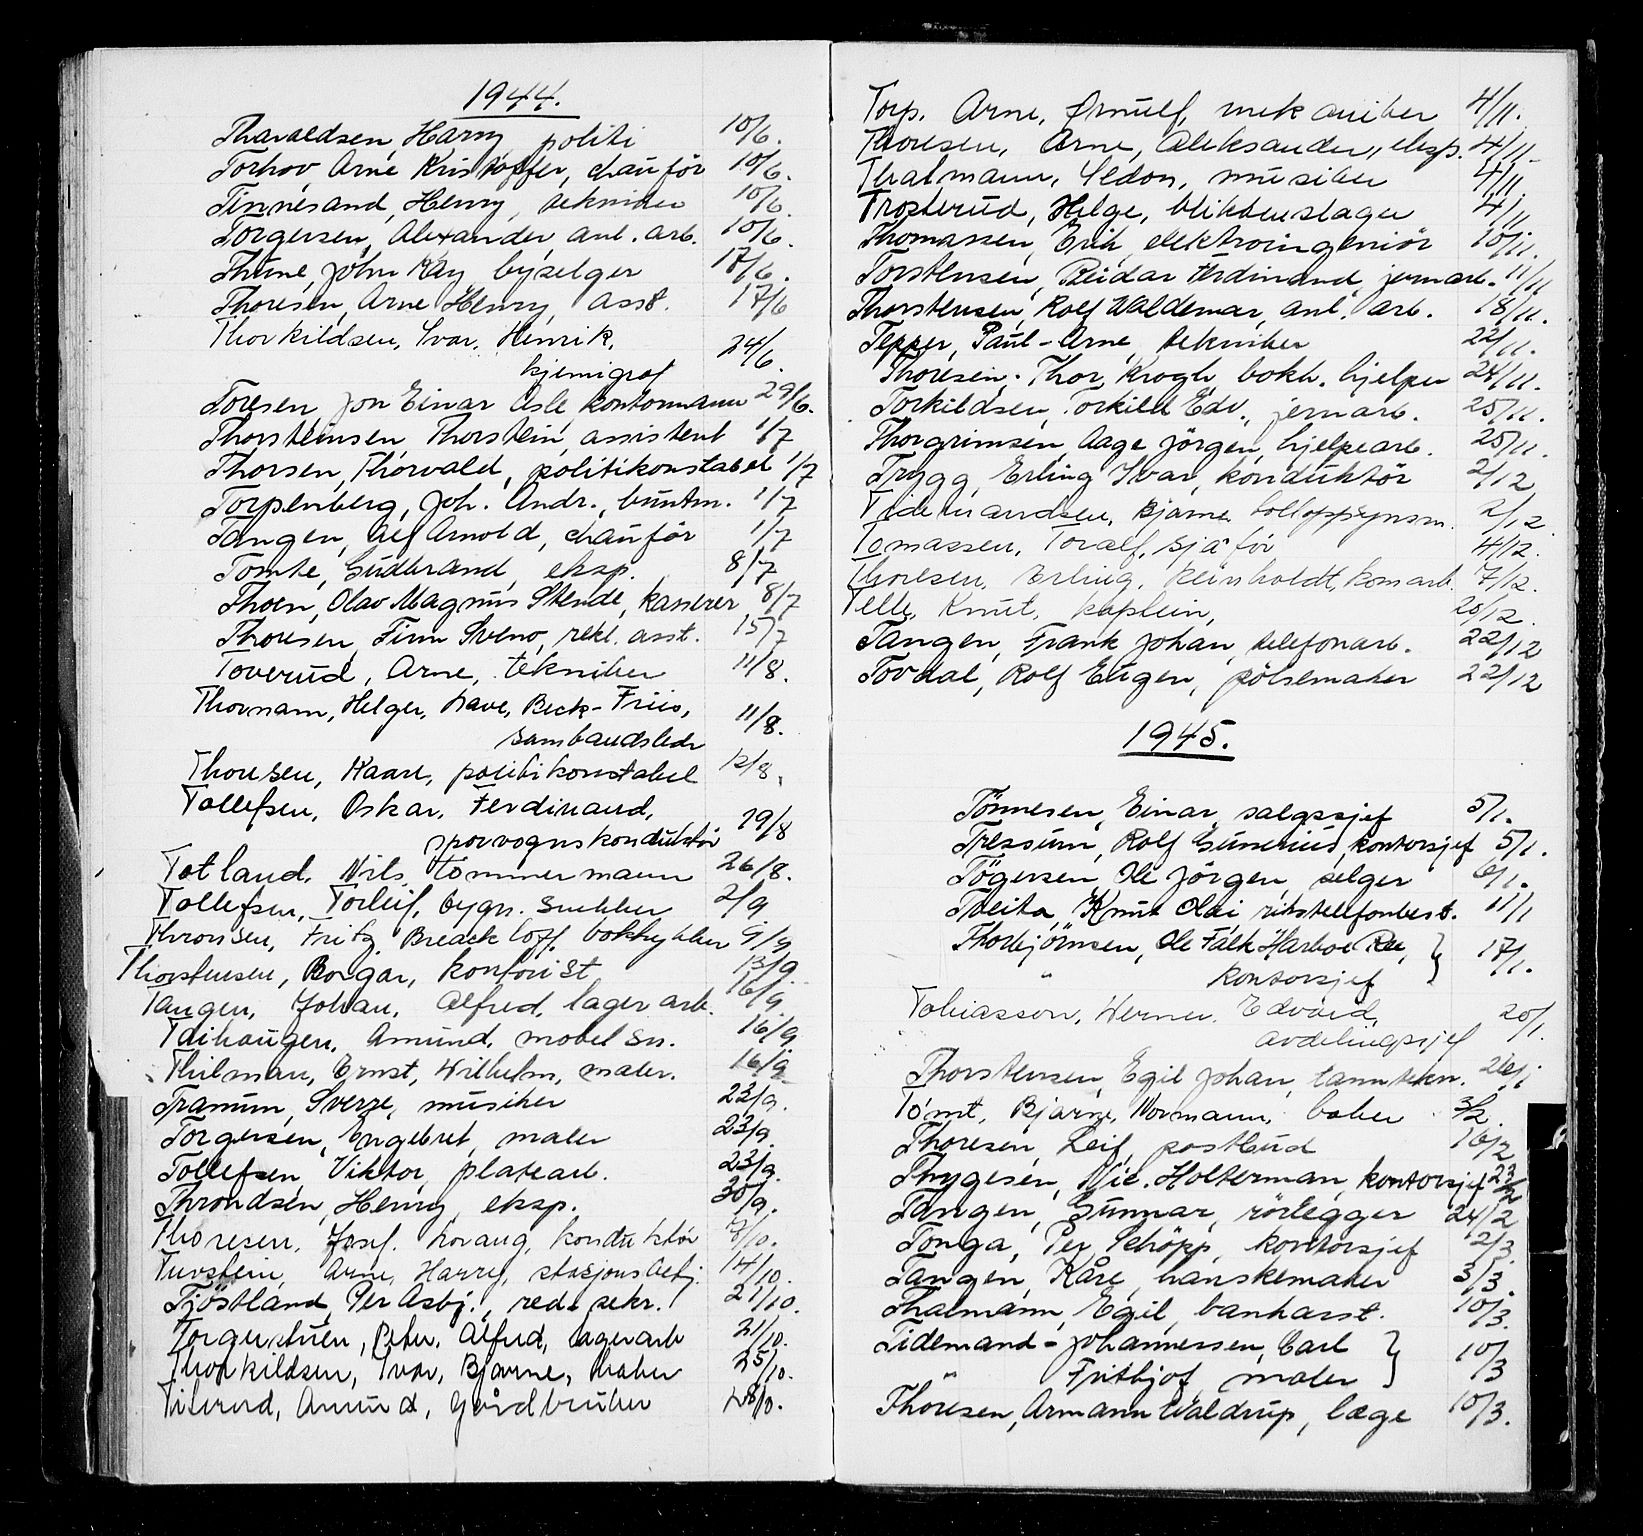 1944.
Tharaldsen, Harry, politi 10/6.
Torhov, Arne Kristoffer, chauför 10/6.
Tinnesand, Henry, tekniker 10/6.
Torgersen, Alexander, anl. arb. 10/6.
Thune, John Kay, byselger 17/6.
Thoresen, Arne Henry, ass. 17/6
Thorkildsen, Ivar, Henrik,
kjemigraf 24/6.
Toresen, Jon Einar Asle kontormann 29/6.
Thorsteinsen, Thorstein, assistent 1/7
Thorsen, Thorvald, politikonstabel 1/7
Torpenberg, Joh. Andr., buntm. 1/7
Tangen, Alf Arnold, chauför 1/7
Tomte, Gudbrand, eksp. 8/7
Thoen, Olav Magnus Stende, kasserer 8/7
Thoresen, Finn Sveno, rekl. asst. 15/7
Toverud, Arne, tekniker 11/8.
Thornam, Helger, Lave, Beck-Friis,
sambandsledr 11/8.
Thoresen, Kaare, politikonstabel 12/8.
Tollefsen, Oskar, Ferdinand,
sporvognskonduktör 19/8
Totland, Nils, tömmermann 26/8.
Tollefsen, Torleif, bygn. snekker 2/9.
Thronsen, Fritz, Breack Coff, boktrykker 9/9
Thorstensen, Borgar, kontorist 13/9.
Tangen, Johan, Alfred, lager arb. 16/9.
Taihaugen, Amund, möbel sn. 16/9
Thilman, Ernst, Wilhelm, maler. 16/9
Tranum, Sverre, musiker 23/9.
Torgersen, Engebret, maler 23/9.
Tollefsen, Viktor, platearb. 23/9.
Throndsen, Henry, eksp. 30/9.
Thoresen, Josef, Lorang, konduktör 7/10.
Tuvstein, Arne, Harry, stasjonsbetj. 14/10.
Tjöstland, Per Asbj., red. sekr. 21/10.
Torgerstuen, Peter, Alfred, lagerarb 21/10.
Thorkildsen, Ivar, Bjarne, maker 25/10.
Tilerud, Amund, gårdbruker 28/10.
Torp. Arne, Ørnulf, mekaniker 4/11.
Thoresen, Arne, Aleksander, eksp. 4/11
Thalmann, Sedon, musiker 4/11.
Trosterud, Helge, blikkenslager 4/11
Thomassen, Erik, elektroingeniör 10/11.
Torstensen, Reidar Ferdinand, jernarb. 11/11
Thorstensen, Rolf Waldemar, anl. arb. 18/11.
Tepper, Paul-Arne, tekniker 22/11.
Thoresen, Thor, Krogh, bokh. hjelper 24/11.
Torkildsen, Torkild Edv., jernarb. 25/11.
Thorgrimsen, Aage Jörgen, hjelpearb. 25/11.
Trygg, Erling Ivar, konduktör 2/12
Tidemandsen, Bjarne tolloppsynsm. 2/12
Tomassen, Toralf, sjåför 4/12.
Thoresen, Erling, Reinholdt, kom arb. 7/12.
Telle, Knut, kaptein, 20/12.
Tangen, Frank Johan, telefonarb. 22/12
Tovdal, Rolf Eugen, pölsemaker 22/12
1945.
Tönnesen, Einar, salgssjef 5/1.
Tressum, Rolf Gunerius, kontorsjef 5/1.
Tögersen, Ole Jörgen, selger 6/1.
Tveita, Knut Olai rikstelefonbest. 11/1
Thorbjörnsen, Ole Falk Harboe Ree,
kontorsjef 17/1.
Tobiasson, Werner, Edvard,
avdelingssjef 20/1.
Thorstensen, Egil Johan, tanntekn. 26/1
Tomt, Bjarne, Normann, baker 3/2.
Thoresen, Leif, postbud 16/2
Thygesen, Nic. Holterman, kontorsjef 23/2
Tangen, Gunnar, rörlegger 24/2
Tonga, Per Schöpp, kontorsjef 2/3.
Tangen, Kåre, hanskemaker 3/3.
Thalmann, Egil, bankasst. 10/3.
Tidemand-Johannessen, Carl
Fritbjof, maler 10/3
Thoresen, Armann Waldrup, læge 10/3.